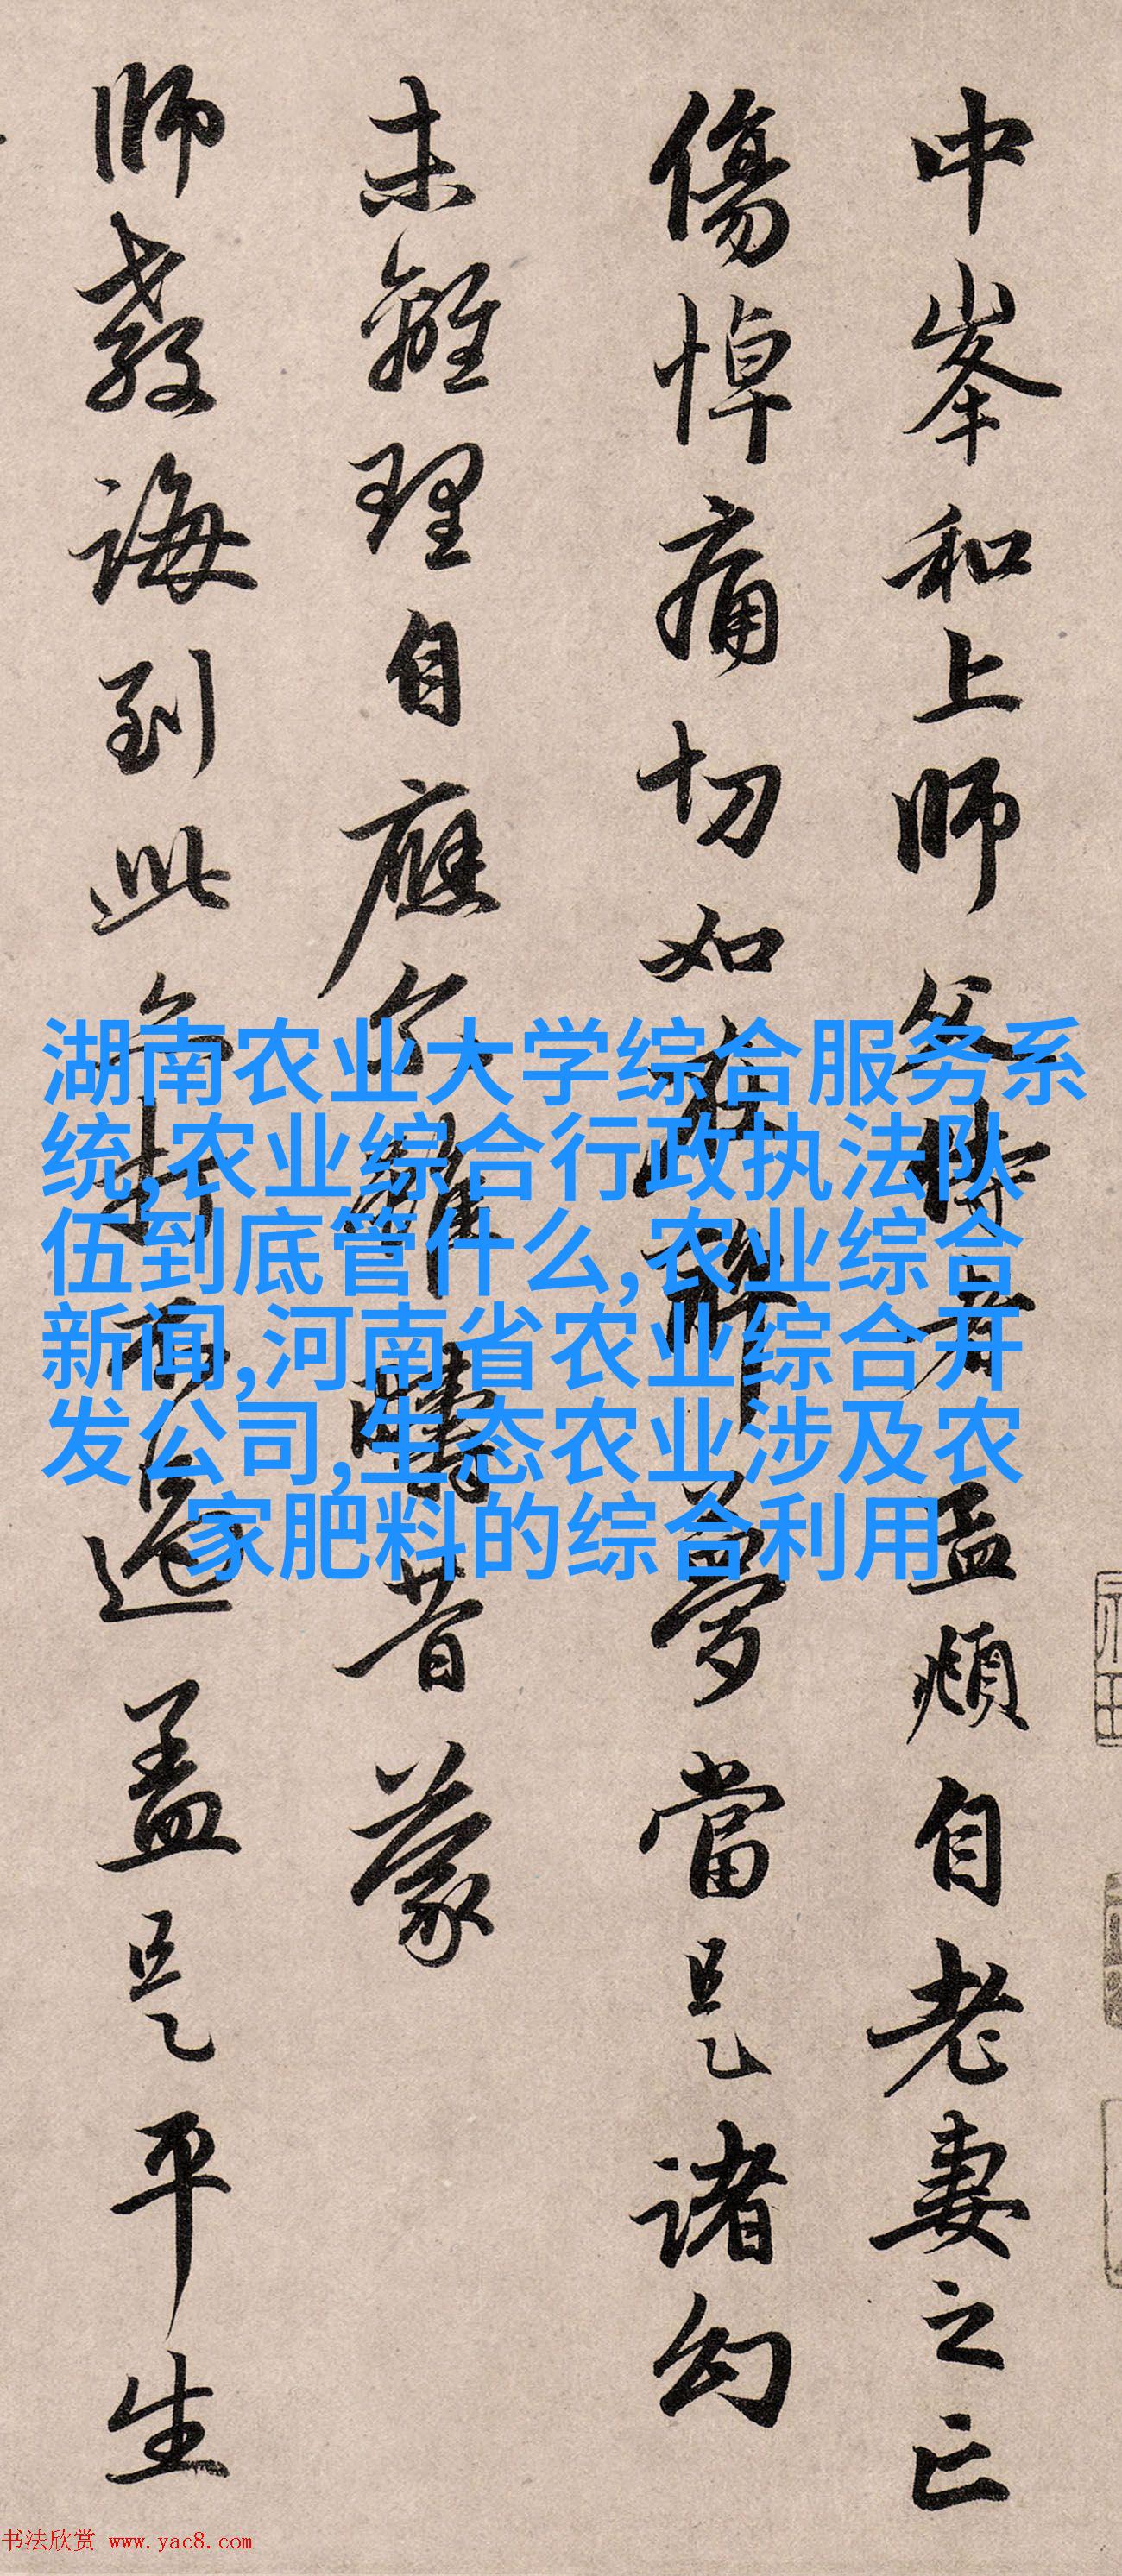 中峯和上師父侍者孟頫自老妻之亡
傷悼痛切如在醉夢當是諸幻
未離理自應尔雖疇昔蒙
師教誨到此亦打不過蓋是平生
湖南农业大学综合服务系
统,农业综合行政执法队
伍到底管什么,农业综合
新闻,河南省农业综合开
发公司,生态农业涉及农
家肥料的综合利用
书法欣赏 www.yac8.com